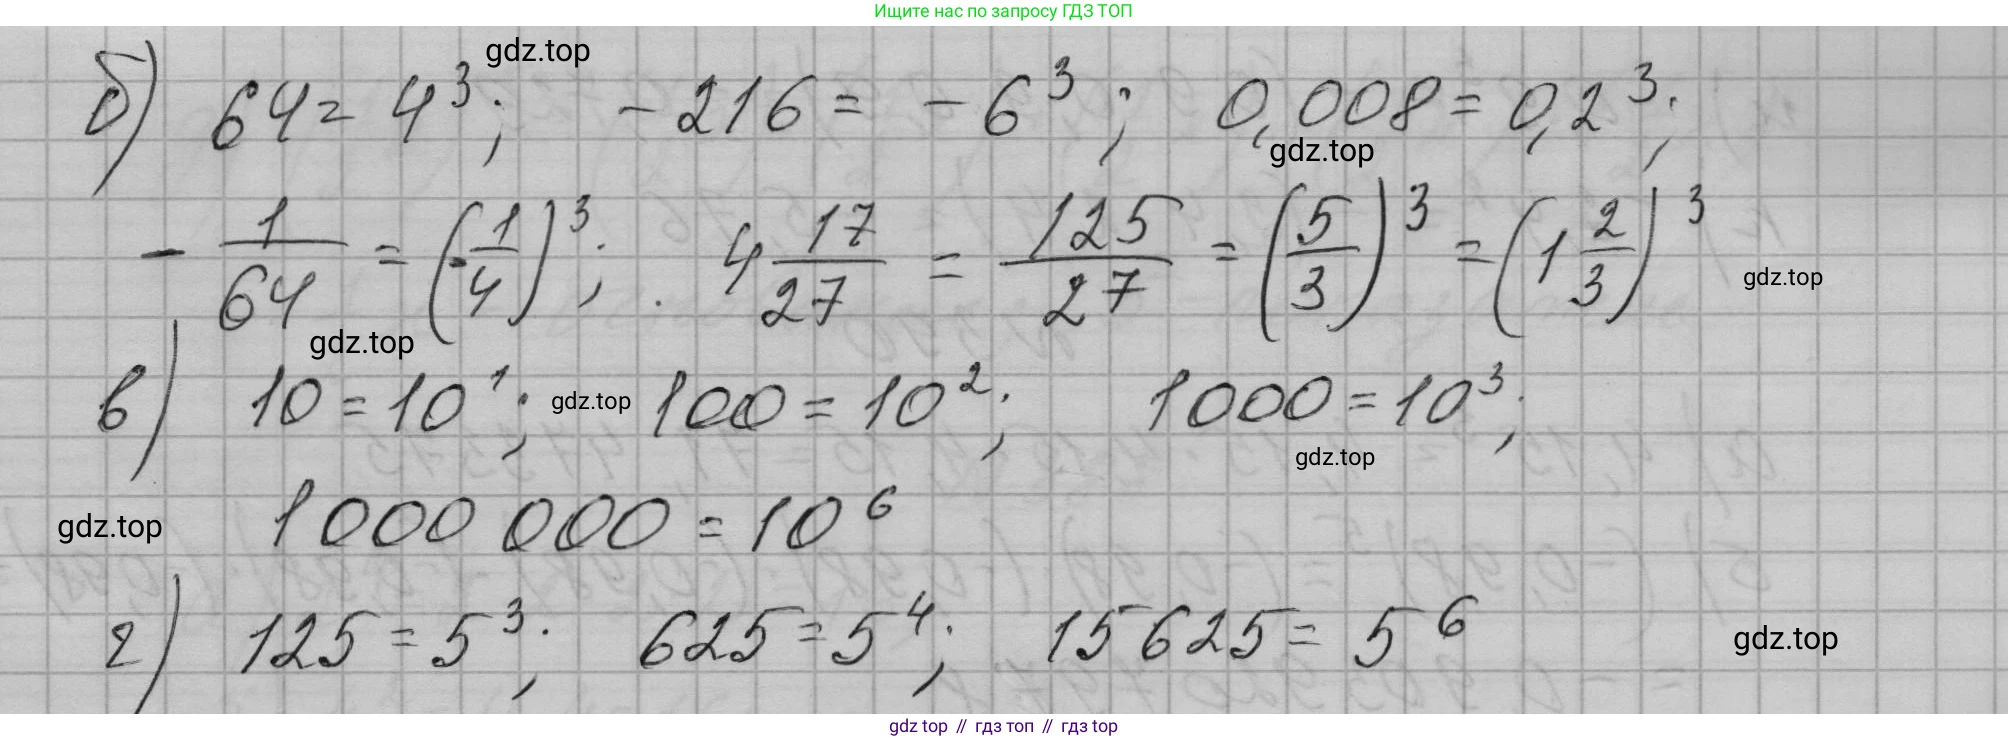 Ищите нас по запросу ГДЗ ТОП
gdz.top
б) 64 = 4³; -216 = -6³; 0,008 = 0,2³;
gdz.top
-1/64 = (-1/4)³; 4 17/27 = 125/27 = (5/3)³ = (1 2/3)³
gdz.top
gdz.top
в) 10 = 10¹; gdz.top 100 = 10²; 1000 = 10³;
gdz.top
gdz.top 1000 000 = 10⁶
г) 125 = 5³; 625 = 5⁴; 15 625 = 5⁶
gdz.top
gdz top // гдз топ // гдз top